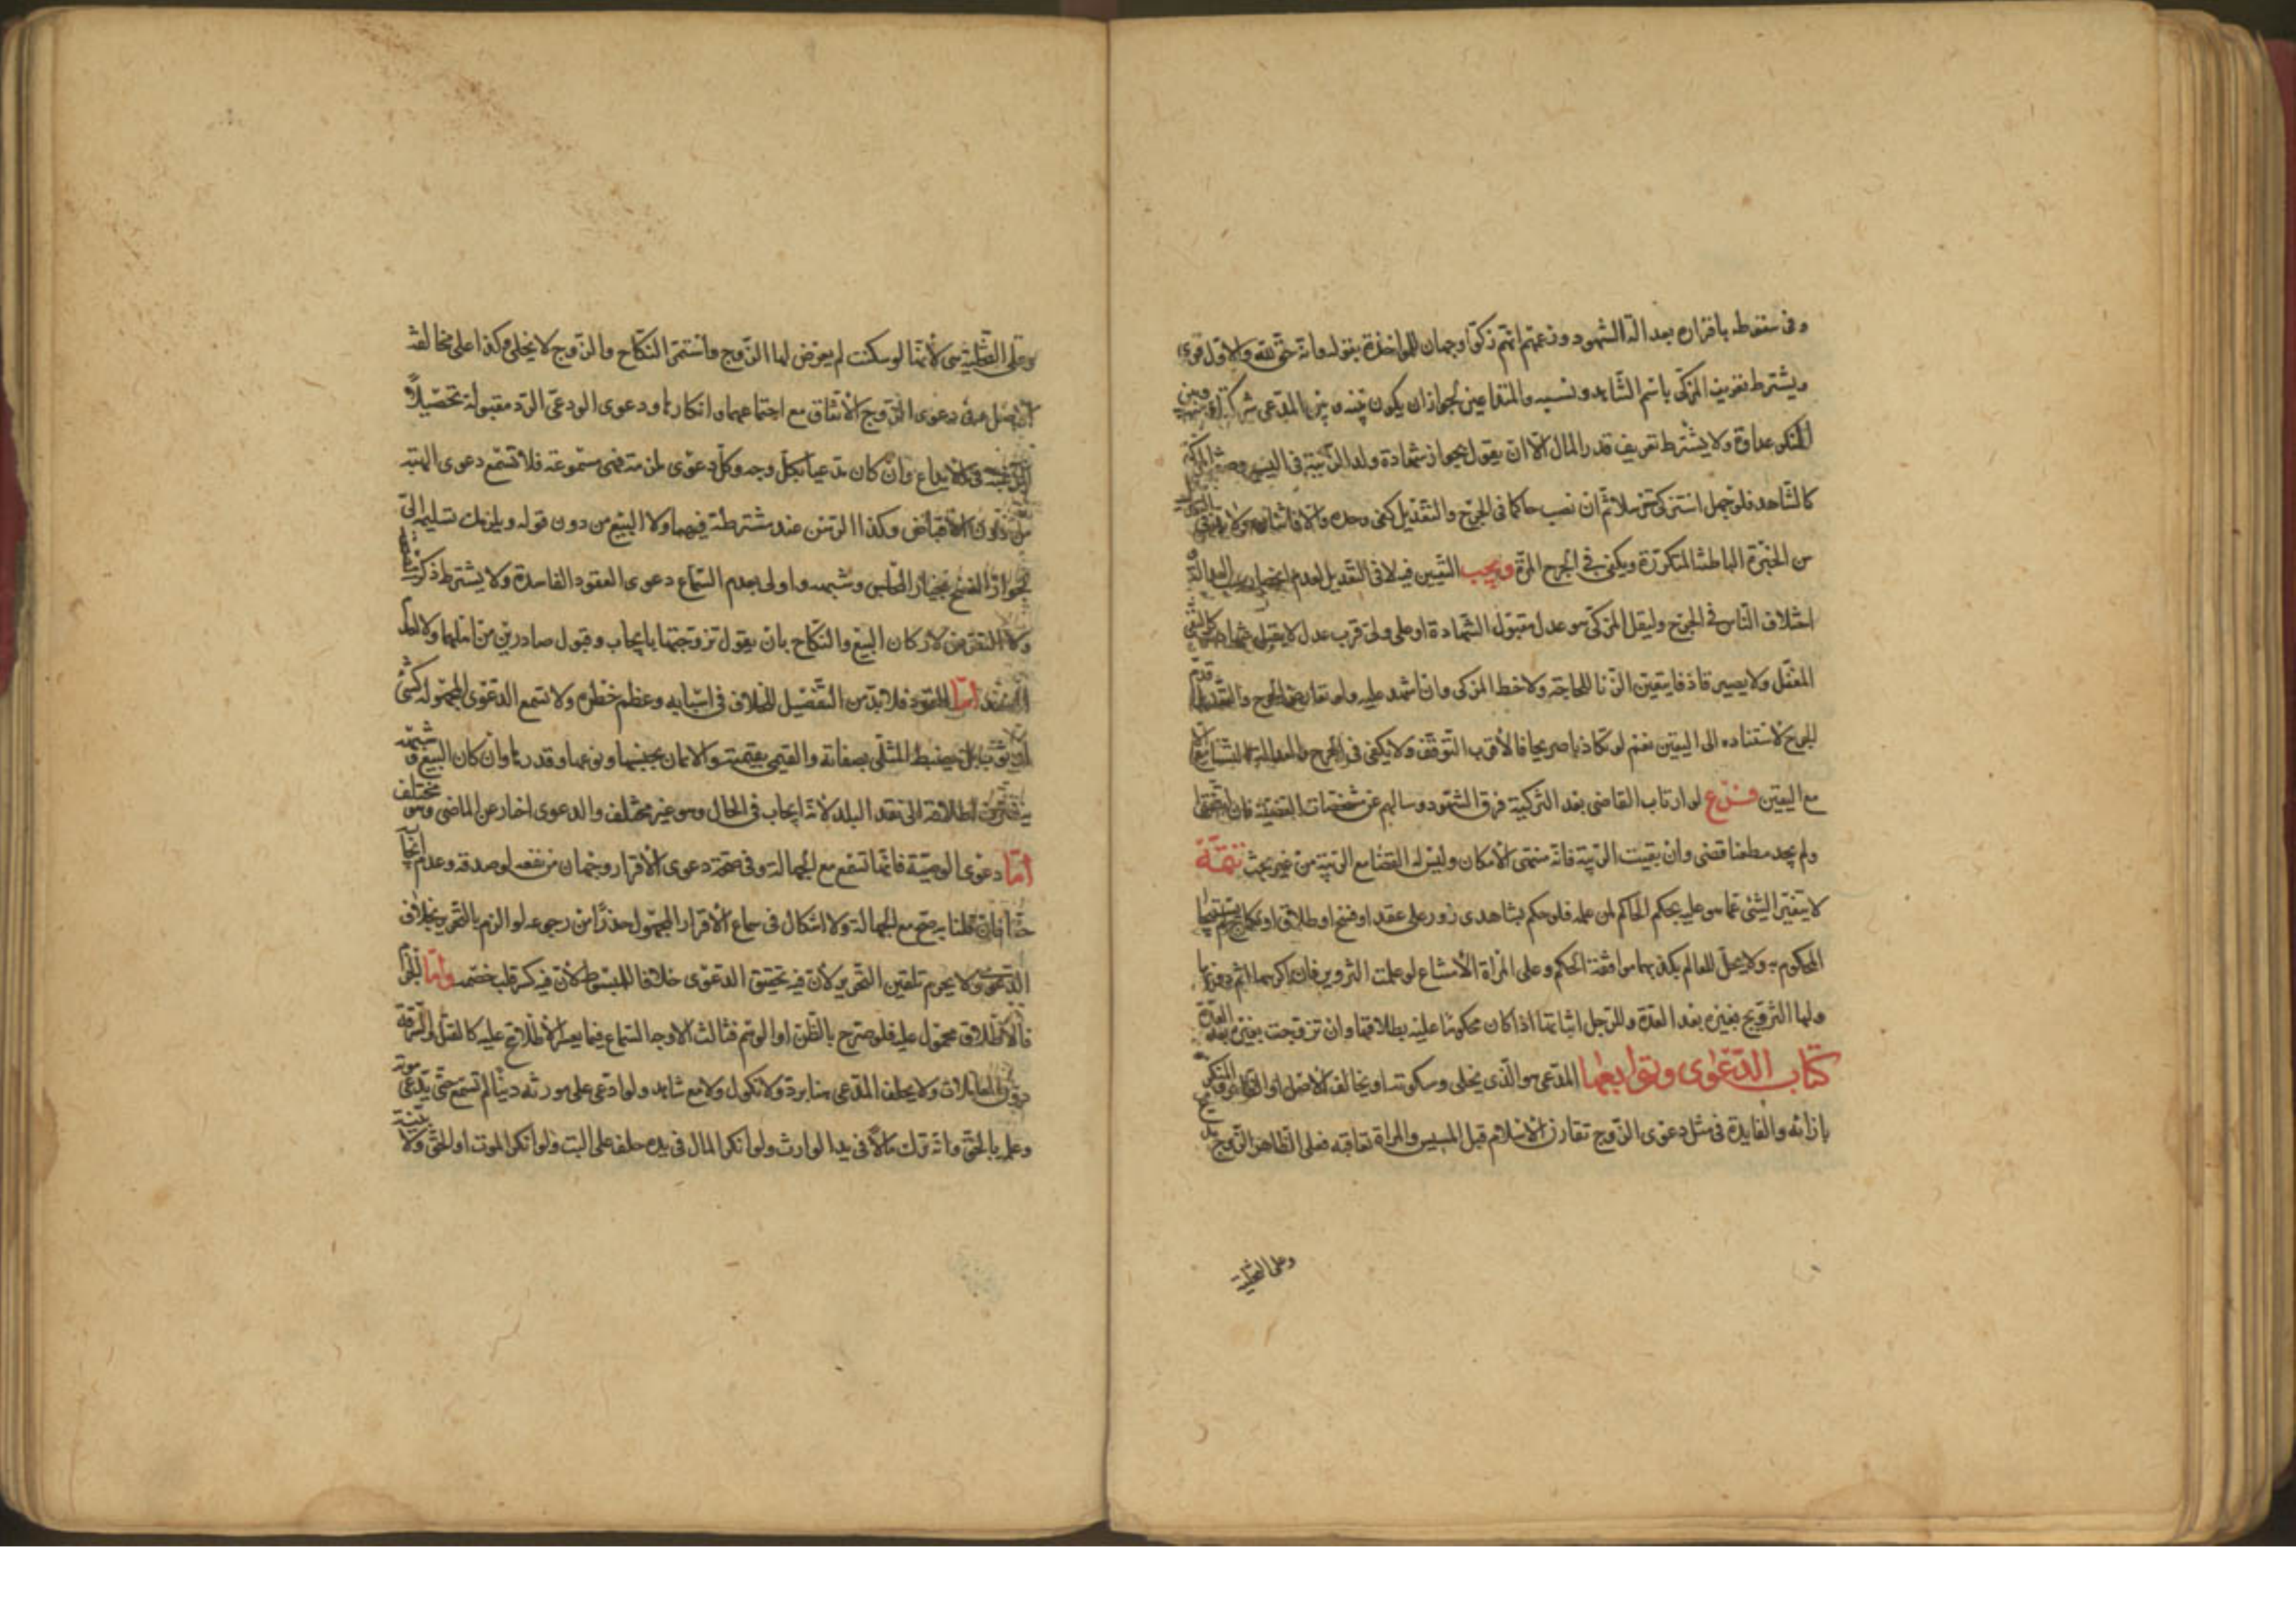 وفى سقوطه باقراره بعدالة الشهود وزعمهم انهم زكوا وجهان للمواخذة بقوله وانه حق لله والاول قوى
ويشترط تعريف المزكى باسم الشاهد ونسبه والمتداعيين لجواز ان يكون بينه وبين المدعى شركة او بينه وبين
المنكر عداوة ولا يشترط تعريف قدر المال الا ان يقول بجواز شهادة ولد الزنية فى اليسير وصفة المزكى
كالشاهد فلو جهل استزكى مثلا ثم ان نصب حاكما فى الجرح والتعديل كفى وحده والا فاثنان ولا بد فى
من الخبرة الباطنة المتكررة ويكفى فى الجرح المرة ويجب التبيين فيه لا فى التعديل لعدم انحصار العدالة
اختلاف الناس فى الجرح وليقل المزكى هو عدل مقبول الشهادة او على ولى فرب عدل لا يقبل شهادته
المغفل ولا يصير قاذفا بتعيين الزنا للحاجة ولا خط المزكى وان اشهد عليه ولو تعارض الجرح والتعديل قدم
الجرح لاستناده الى اليقين نعم لو تكاذبا صريحا فالاقرب التوقف ولا يكفى فى الجرح والعدالة الشياع الا
مع اليقين فرع لو ارتاب القاضى بعد التزكية فرق الشهود وسالهم عن مشخصات القضية فان اتفقوا
ولم يجد مطعنا قضى وان بقيت الريبة فانه منتهى الامكان وليس له القضا مع الريبة من غير بحث تتمة
لا يتغير الشئ عما هو عليه بحكم الحاكم لمن علمه فلو حكم بشاهدى زور على عقد او فسخ او طلاق او نكاح
المحكوم به ولا يحل للعالم بكذبهما موافقة الحكم وعلى المراة الامتناع لو علمت التزوير فان اكرهها اثم دونها
ولها التزويج بغيره بعد العدة وللرجل اتيانها اذا كان محكوما عليه بطلاقها وان تزوجت بغيره بعد العدة
كتاب الدعوى وتوابعها المدعى هو الذى يخلى وسكوته او يخالف الاصل او الظاهر والمنكر
بازائه والفايدة فى مثل دعوى الزوج تقارن الاسلام قبل المسيس والمراة تعاقبه فعلى الظاهر الزوج
وعلى التخلية
وعلى التخلية هى لانها لو سكتت لم يعرض لها الزوج واستمر النكاح والزوج لا يخلى وكذا على مخالفة
الاصل دعوى الزوج الانفاق مع اجتماعهما وانكارها ودعوى الودعى الرد مقبولة تحصيلا
للرغبة فى الايداع وان كان مدعيا بكل وجه وكل دعوى ملزمة فهى مسموعة فلا تسمع دعوى الهبة
من دون الاقباض وكذا الرهن عند مشترطه فيهما ولا البيع من دون قوله ويلزمك تسليمه الى
لجواز الفسخ بخيار المجلس وشبهه واولى بعدم السماع دعوى العقود الفاسدة ولا يشترط ذكر
ولا التعرض لاركان البيع والنكاح بان يقول تزوجتها بايجاب وقبول صادرين من اهلهما ولا الولى
الرشد اما القود فلا بد من التفصيل للخلاف فى اسبابه وعظم خطره ولا تسمع الدعوى المجهولة كشئ
او ثوب بل يضبط المثلى بصفاته والقيمى بقيمته والاثمان بجنسها ونوعها وقدرها وان كان البيع وشبهه
ينصرف اطلاقه الى نقد البلد لانه ايجاب فى الحال وهو غير مختلف والدعوى اخبار عن الماضى وهو مختلف
اما دعوى الوصية فانها تسمع مع الجهالة وفى صحة دعوى الاقرار وجهان من نفعه لو صدقه وعدم ايجابه
حقا فان قلنا به صح مع الجهالة ولا اشكال فى سماع الاقرار المجهول حذرا من رجوعه لو الزم بالتحرير بخلاف
الدعوى ولا يحرم تلقين التحرير لان فيه تحقيق الدعوى خلافا للمبسوط لان فيه كسر قلب خصمه واما
فالاطلاق محمول عليه فلو صرح بالظن او الوهم فثالث الاوجه السماع فيما يعسر الاطلاع عليه كالقتل والسرقة
دون المعاملات ولا يحلف المدعى هنا برد ولا نكول ولا مع شاهد ولو ادعى على مورثه دينا لم تسمع حتى يدعى موته
وعلمه بالحق وانه ترك مالا فى يد الوارث ولو انكر المال فى يده حلف على البت ولو انكر الموت او الحق ولا بينة